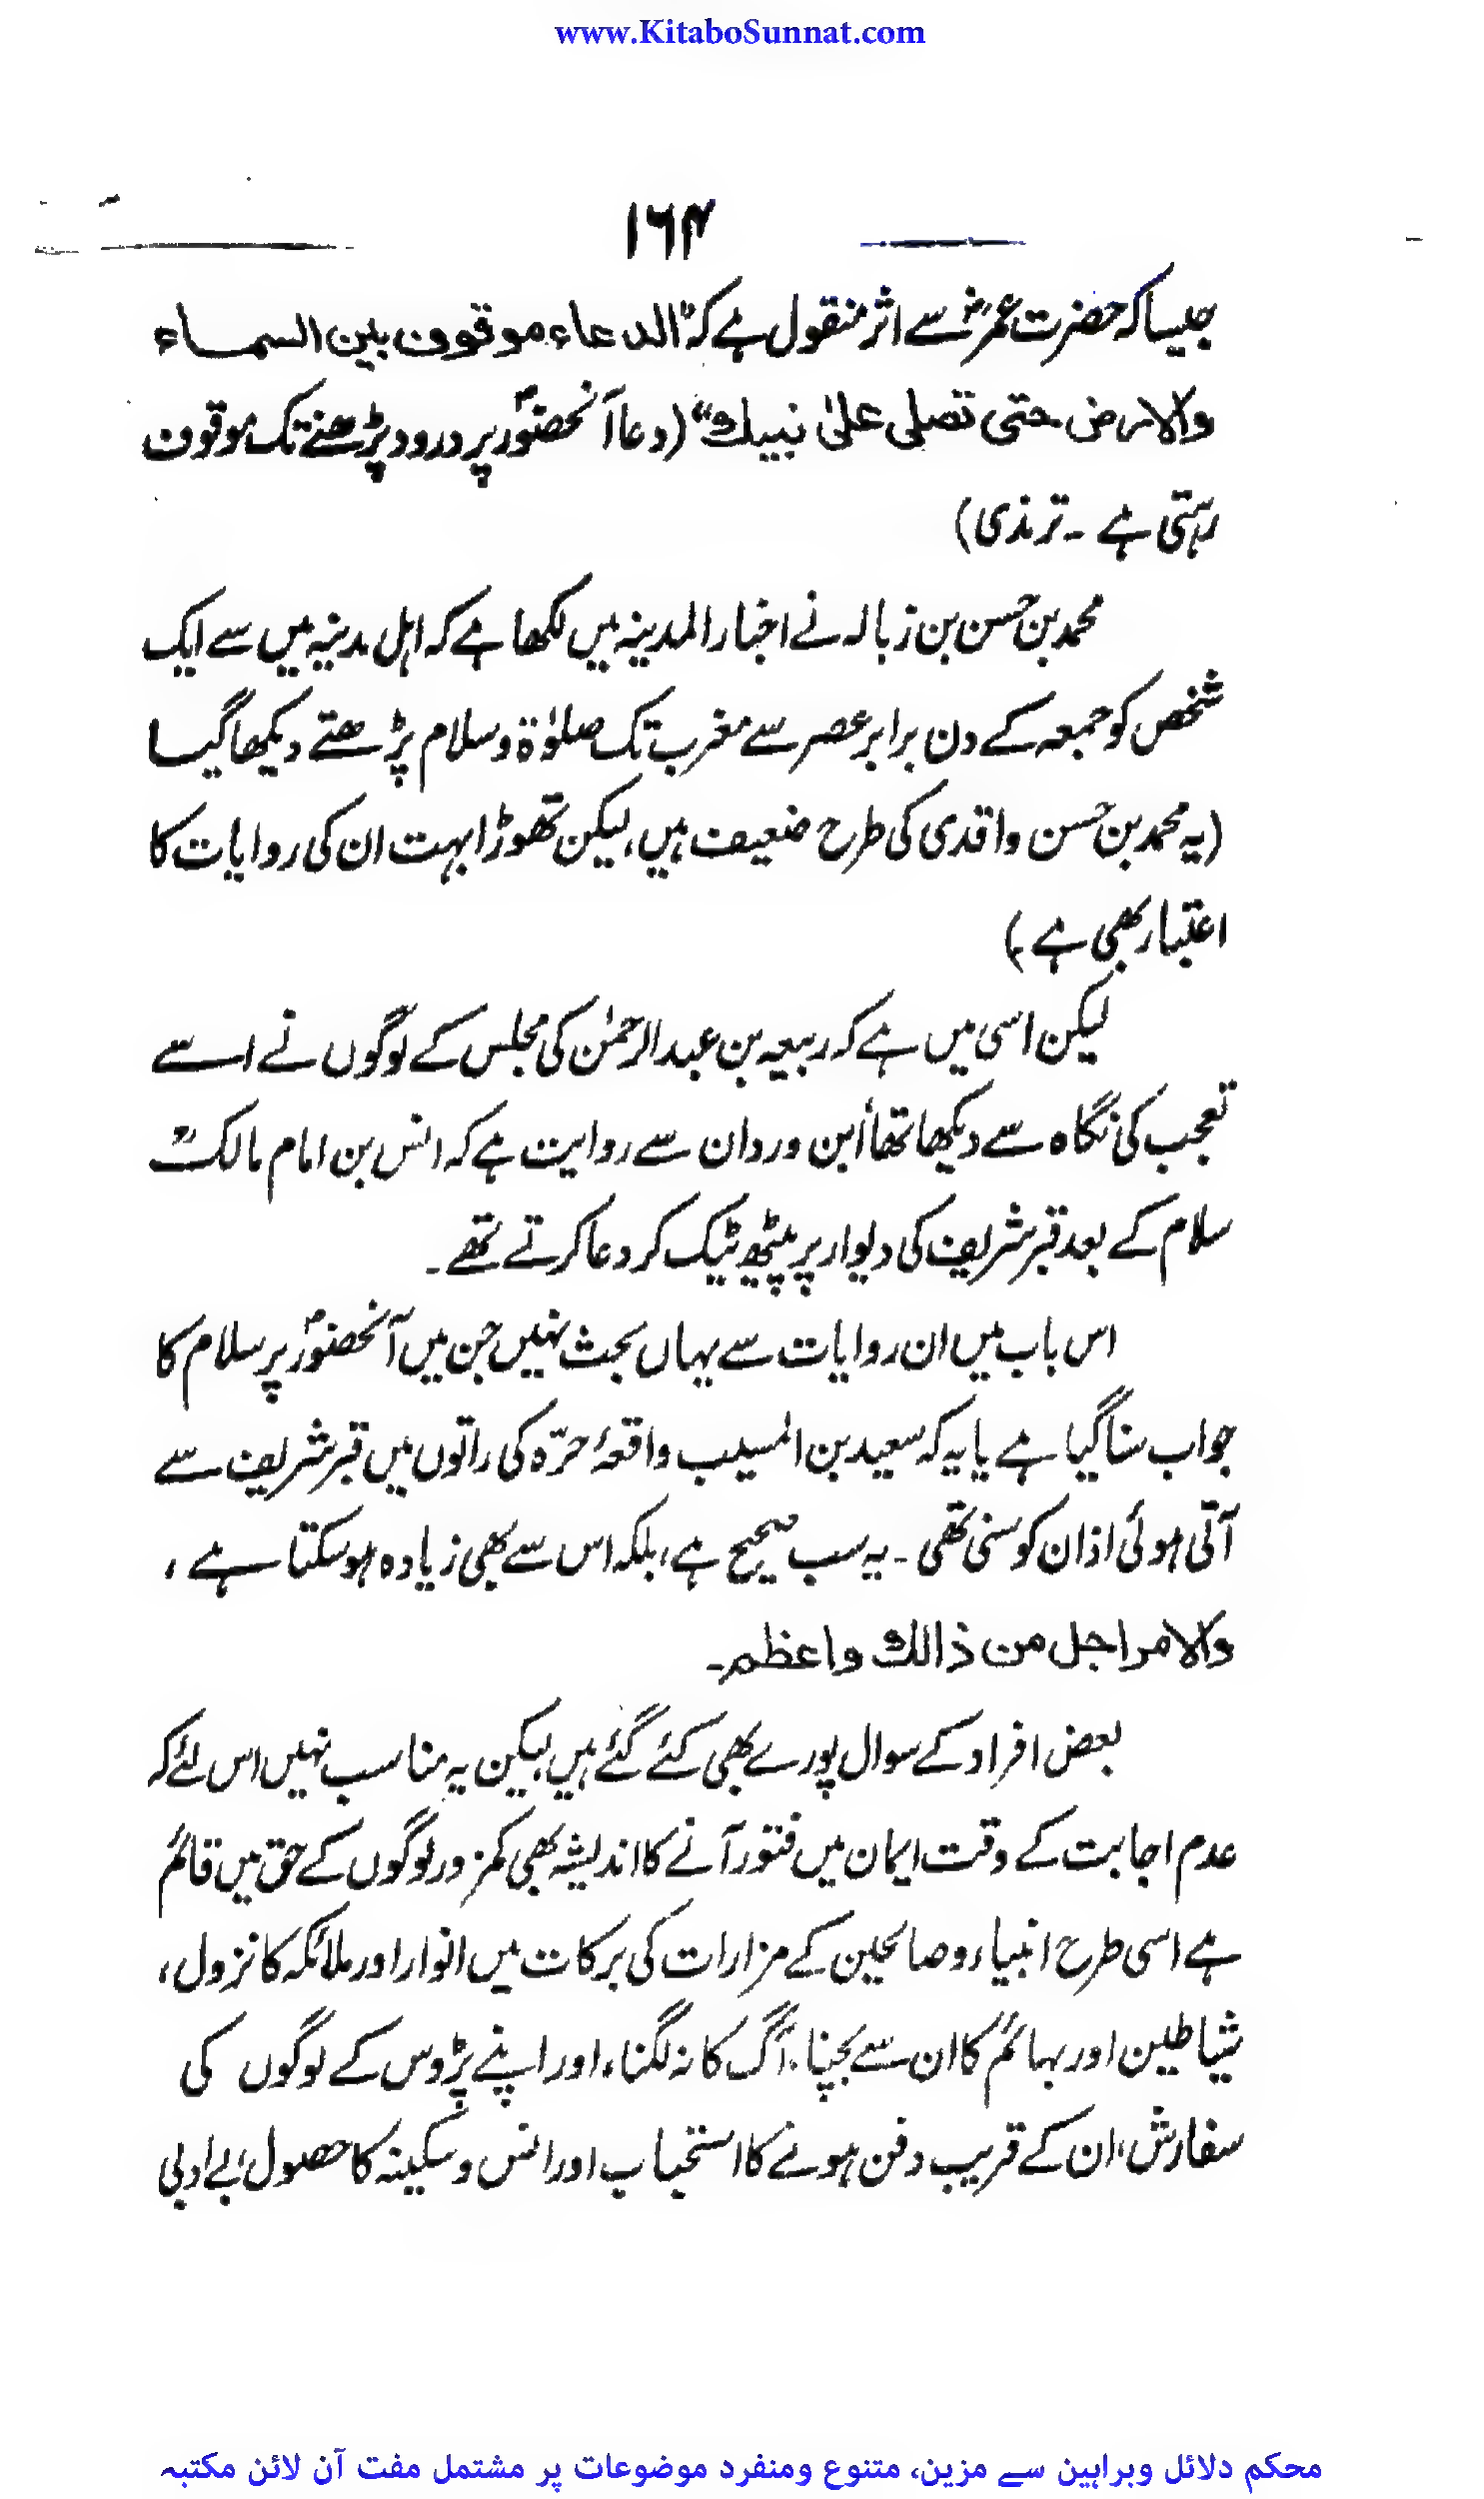 www.KitaboSunnat.com
۱۶۴
جیسا کہ حضرت عمرؓ سے اثر منقول ہے کہ "الدعاء موقوف بین السماء
والارض حتی تصلی علیٰ نبیك" (دعا آنحضورؐ پر درود پڑھنے تک موقوف
رہتی ہے ۔ ترمذی)
محمد بن حسن بن زبالہ نے اخبار المدینہ میں لکھا ہے کہ اہل مدینہ میں سے ایک
شخص کو جمعہ کے دن برابر عصر سے مغرب تک صلوٰۃ و سلام پڑھتے دیکھا گیا
(یہ محمد بن حسن واقدی کی طرح ضعیف ہیں، لیکن تھوڑا بہت ان کی روایات کا
اعتبار بھی ہے،)
لیکن اسی میں ہے کہ ربیعہ بن عبدالرحمٰن کی مجلس کے لوگوں نے اسے
تعجب کی نگاہ سے دیکھا تھا ابن وردان سے روایت ہے کہ انس بن امام مالکؒ
سلام کے بعد قبر شریف کی دیوار پر پیٹھ ٹیک کر دعا کرتے تھے ۔
اس باب میں ان روایات سے یہاں بحث نہیں جن میں آنحضورؐ پر سلام کا
جواب سنا گیا ہے یا یہ کہ سعید بن المسیب واقعۂ حرّہ کی راتوں میں قبر شریف سے
آتی ہوئی اذان کو سنی تھی ۔ یہ سب صحیح ہے، بلکہ اس سے بھی زیادہ ہو سکتا ہے ،
والامر اجل من ذالك واعظم۔
بعض افراد کے سوال پورے بھی کئے گئے ہیں، لیکن یہ مناسب نہیں اس لئے کہ
عدم اجابت کے وقت ایمان میں فتور آنے کا اندیشہ بھی کمزور لوگوں کے حق میں قائم
ہے اسی طرح انبیاء و صالحین کے مزارات کی برکات میں انوار اور ملائکہ کا نزول،
شیاطین اور بہائم کا ان سے بچنا، آگ کا نہ لگنا، اور اپنے پڑوس کے لوگوں کی
سفارش، ان کے قریب دفن ہونے کا استحباب اور انس و سکینہ کا حصول، بے ادبی
محکم دلائل وبراہین سے مزین، متنوع ومنفرد موضوعات پر مشتمل مفت آن لائن مکتبہ